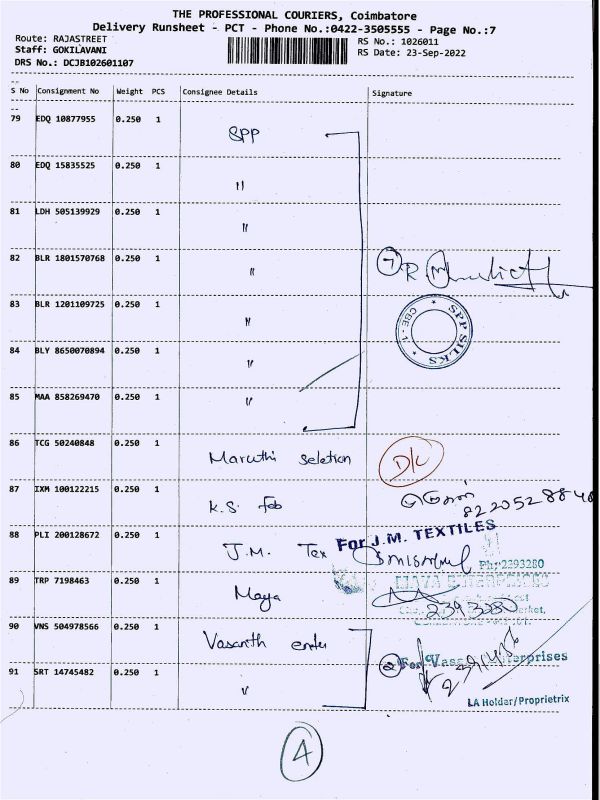 THE PROFESSIONAL COURIERS, Coimbatore
Delivery Runsheet - PCT - Phone No.:0422-3505555 - Page No.:7
Route: RAJASTREET RS No.: 1026011
Staff: GOKILAVANI RS Date: 23-Sep-2022
DRS No.: DCJB102601107
S No Consignment No Weight PCS Consignee Details Signature
79 EDQ 10877955 0.250 1 SPP
80 EDQ 15835525 0.250 1 "
81 LDH 505139929 0.250 1 "
82 BLR 1801570768 0.250 1 " 7
83 BLR 1201109725 0.250 1 " SPP SILKS CBE-1
84 BLY 8650070894 0.250 1 "
85 MAA 858269470 0.250 1 "
86 TCG 50240848 0.250 1 Maruthi Seletion D/L
87 IXM 100122215 0.250 1 K.S. Feb
88 PLI 200128672 0.250 1 J.M. Tex For J.M. TEXTILES
Ph:2393280
89 TRP 7198463 0.250 1 Maya MAYA ENTERPRISES
2393280
90 VNS 504978566 0.250 1 Vasanth enter
2 For Vasanth Enterprises
91 SRT 14745482 0.250 1 "
LA Holder/Proprietrix
4